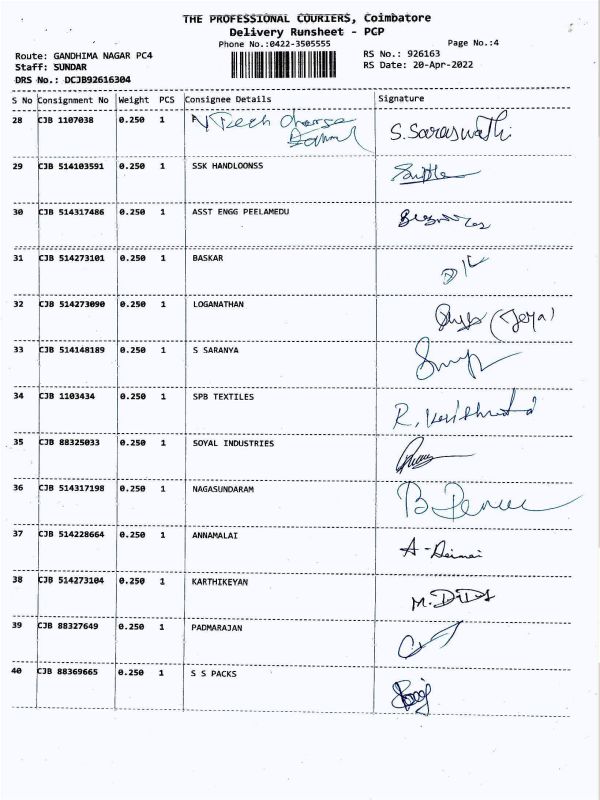 THE PROFESSIONAL COURIERS, Coimbatore
Delivery Runsheet - PCP
Phone No.:0422-3505555
Page No.:4
Route: GANDHIMA NAGAR PC4
RS No.: 926163
Staff: SUNDAR
RS Date: 20-Apr-2022
DRS No.: DCJB92616304
S No Consignment No Weight PCS Consignee Details Signature
28 CJB 1107038 0.250 1 S.Saraswathi
29 CJB 514103591 0.250 1 SSK HANDLOONSS
30 CJB 514317486 0.250 1 ASST ENGG PEELAMEDU
31 CJB 514273101 0.250 1 BASKAR
32 CJB 514273090 0.250 1 LOGANATHAN
33 CJB 514148189 0.250 1 S SARANYA
34 CJB 1103434 0.250 1 SPB TEXTILES R.
35 CJB 88325033 0.250 1 SOYAL INDUSTRIES
36 CJB 514317198 0.250 1 NAGASUNDARAM B.
37 CJB 514228664 0.250 1 ANNAMALAI A -
38 CJB 514273104 0.250 1 KARTHIKEYAN M.
39 CJB 88327649 0.250 1 PADMARAJAN
40 CJB 88369665 0.250 1 S S PACKS